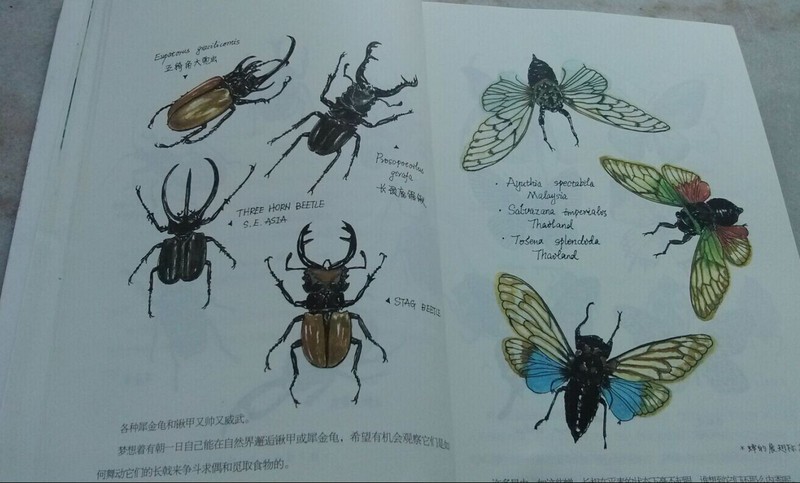 Eupatorus gracilicornis
五椅角大兜虫
Prosopocoilus
girafa
长颈鹿锯锹
THREE HORN BEETLE
S.E. ASIA
STAG BEETLE
各种犀金龟和锹甲又帅又威武。
梦想着有朝一日自己能在自然界邂逅锹甲或犀金龟，希望有机会观察它们是如
何舞动它们的长戟来争斗求偶和觅取食物的。
· Ayuthia spectabile
Malaysia
· Salvazana imperialis
Thailand
· Tosena splendida
Thailand